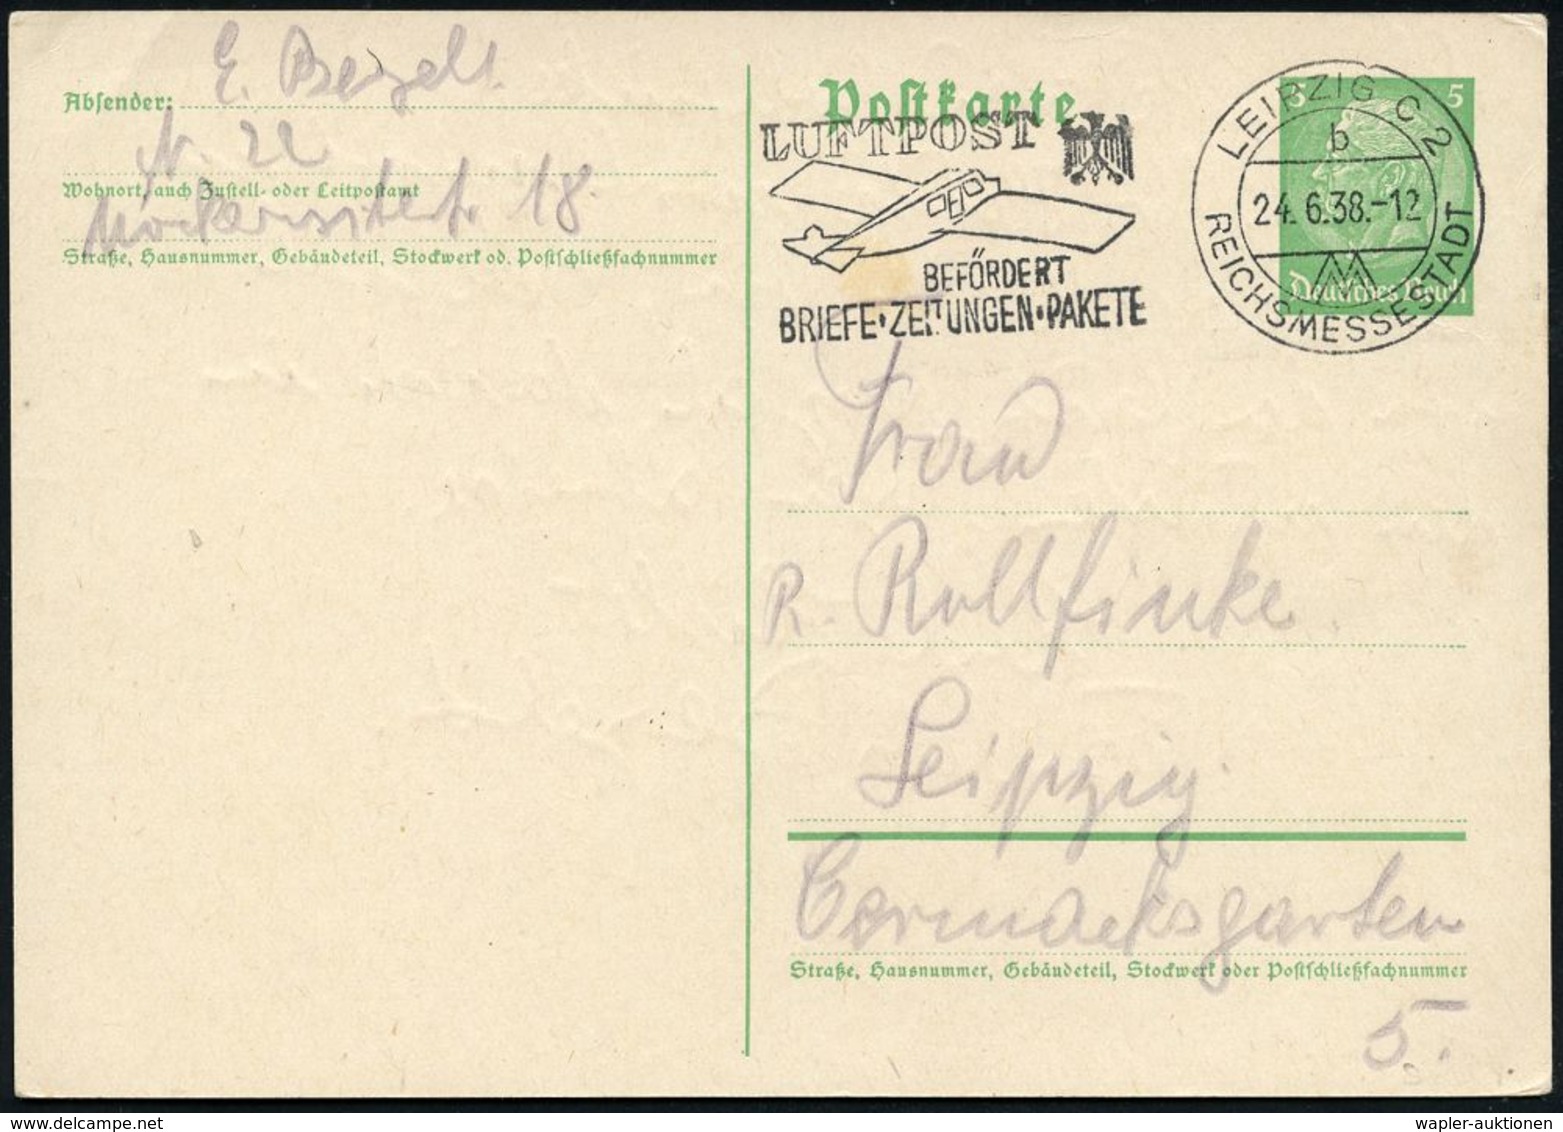 Absender: E.
N. 22
Wohnort, auch Zustell- oder Leitpostamt
18.
Straße, Hausnummer, Gebäudeteil, Stockwerk od. Postschließfachnummer
Postkarte
LUFTPOST
BEFÖRDERT
BRIEFE·ZEITUNGEN·PAKETE
LEIPZIG C 2
b
24.6.38.-12
REICHSMESSESTADT
5 5
Deutsches Reich
Frau
R. Rollfinke
Leipzig
Cermaksgarten
Straße, Hausnummer, Gebäudeteil, Stockwerk oder Postschließfachnummer
5.
wapler-auktionen